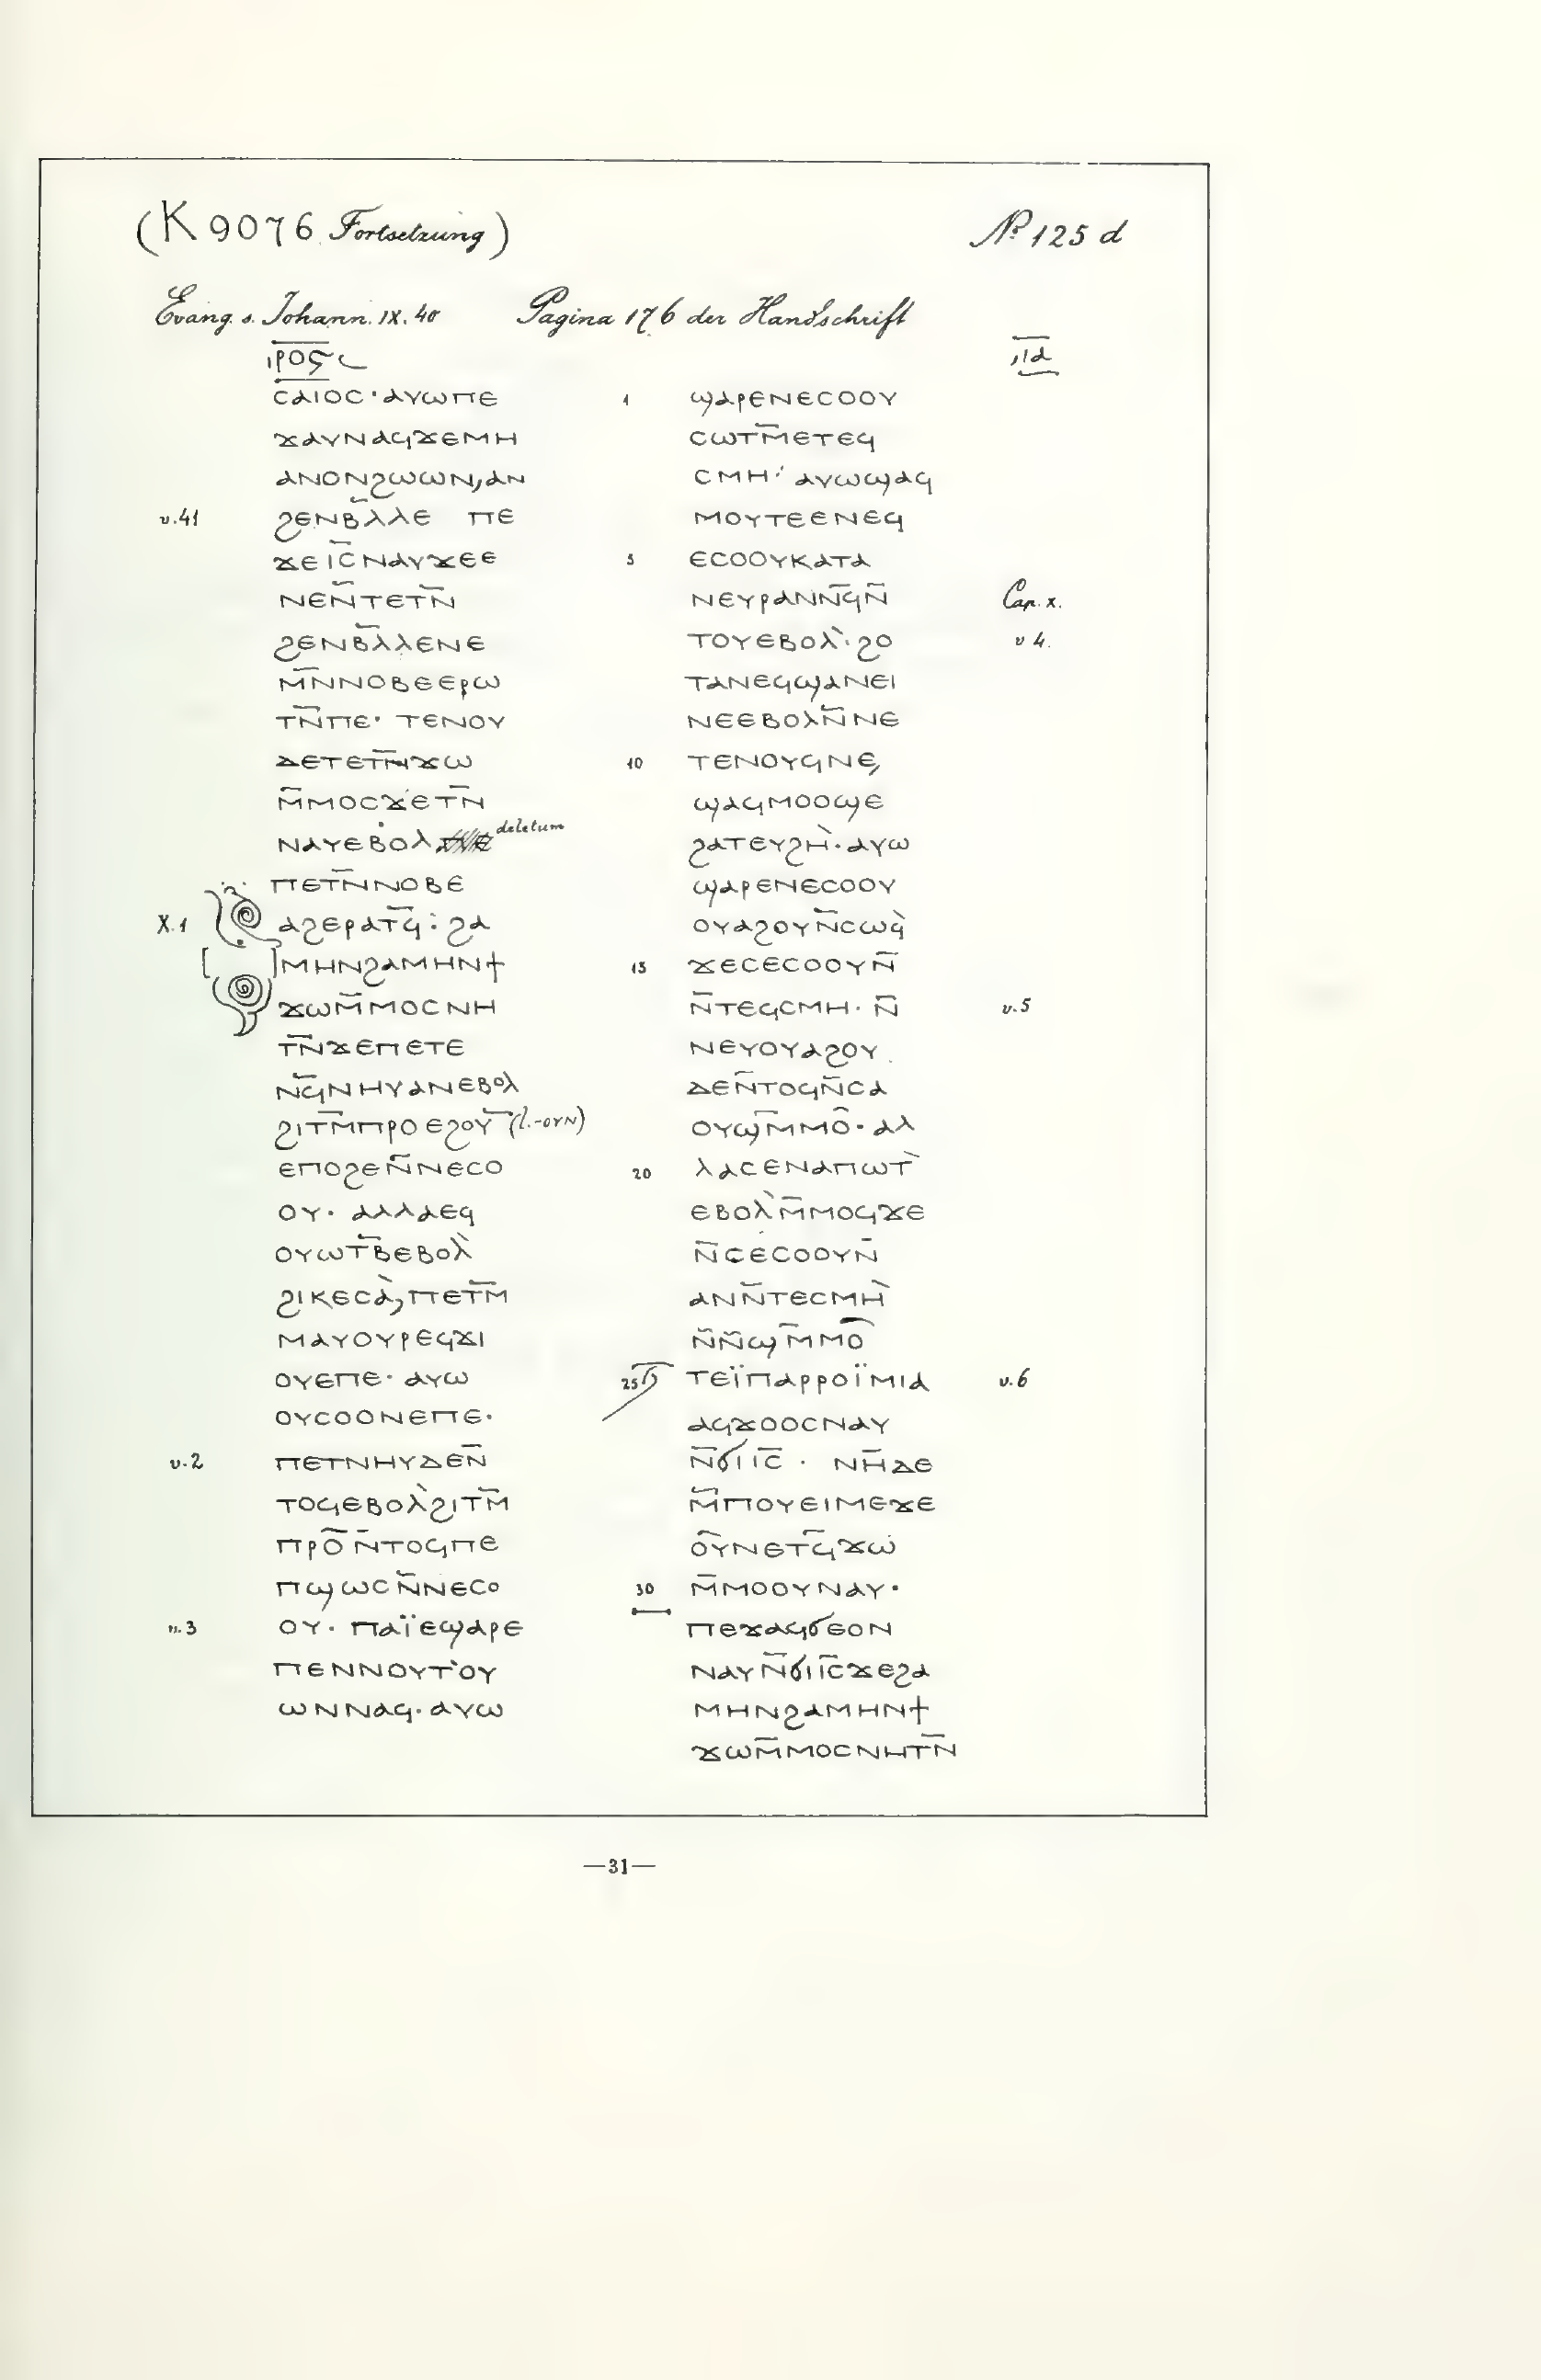 (K 9076 Fortsetzung)
Nº 125 d
Evang. s. Johann. IX. 40 Pagina 176 der Handschrift
ⲣⲟⲋ
ⲓⲁ
ⲥⲁⲓⲟⲥ·ⲁⲩⲱⲡⲉ
ϫⲁⲩⲛⲁϥϫⲉⲙⲏ
ⲁⲛⲟⲛϩⲱⲱⲛ,ⲁⲛ
v.41 ϩⲉⲛⲃ̄ⲗⲗⲉ ⲡⲉ
ϫⲉⲓ̄ⲥ̄ⲛⲁⲩϫⲉⲉ
ⲛⲉⲛ̄ⲧⲉⲧⲛ̄
ϩⲉⲛⲃ̄ⲗⲗⲉⲛⲉ
ⲙ̄ⲛⲛⲟⲃⲉⲉⲣⲱ
ⲧⲛ̄ⲡⲉ· ⲧⲉⲛⲟⲩ
ⲇⲉⲧⲉⲧⲛ̄ϫⲱ
ⲙ̄ⲙⲟⲥϫⲉⲧⲛ̄
ⲛⲁⲩⲉⲃⲟⲗ deletum
ⲡⲉⲧⲛ̄ⲛⲟⲃⲉ
X.1 ⲁϩⲉⲣⲁⲧϥ̄: ϩⲁ
[ ]ⲙⲏⲛϩⲁⲙⲏⲛϯ
ϫⲱⲙ̄ⲙⲟⲥⲛⲏ
ⲧⲛ̄ϫⲉⲡⲉⲧⲉ
ⲛϥ̄ⲛⲏⲩⲁⲛⲉⲃⲟⲗ
ϩⲓⲧⲙ̄ⲡⲣⲟⲉϩⲟⲩ̄ (l.-ⲟⲩⲛ)
ⲉⲡⲟϩⲉⲛ̄ⲛⲉⲥⲟ
ⲟⲩ· ⲁⲗⲗⲁⲉϥ
ⲟⲩⲱⲧⲃ̄ⲉⲃⲟⲗ̀
ϩⲓⲕⲉⲥⲁ̀,ⲡⲉⲧⲙ̄
ⲙⲁⲩⲟⲩⲣⲉϥϫⲓ
ⲟⲩⲉⲡⲉ· ⲁⲩⲱ
ⲟⲩⲥⲟⲟⲛⲉⲡⲉ·
v.2 ⲡⲉⲧⲛⲏⲩⲇⲉⲛ̄
ⲧⲟϥⲉⲃⲟⲗ̀ϩⲓⲧⲙ̄
ⲡⲣⲟ̄ⲛ̄ⲧⲟϥⲡⲉ
ⲡϣⲱⲥⲛ̄ⲛⲉⲥⲟ
v.3 ⲟⲩ· ⲡⲁⲓ̈ⲉϣⲁⲣⲉ
ⲡⲉⲛⲛⲟⲩⲧ̀ⲟⲩ
ⲱⲛⲛⲁϥ·ⲁⲩⲱ
1 ϣⲁⲣⲉⲛⲉⲥⲟⲟⲩ
ⲥⲱⲧⲙ̄ⲉⲧⲉϥ
ⲥⲙⲏ· ⲁⲩⲱϣⲁϥ
ⲙⲟⲩⲧⲉⲉⲛⲉϥ
5 ⲉⲥⲟⲟⲩⲕⲁⲧⲁ
ⲛⲉⲩⲣⲁⲛⲛϥ̄ⲛ̄ Cap. x.
ⲧⲟⲩⲉⲃⲟⲗ̀·ϩⲟ v 4.
ⲧⲁⲛⲉϥϣⲁⲛⲉⲓ
ⲛⲉⲉⲃⲟⲗⲛ̄ⲛⲉ
10 ⲧⲉⲛⲟⲩϥⲛⲉ,
ϣⲁϥⲙⲟⲟϣⲉ
ϩⲁⲧⲉⲩϩⲏ̀·ⲁⲩⲱ
ϣⲁⲣⲉⲛⲉⲥⲟⲟⲩ
ⲟⲩⲁϩⲟⲩⲛ̄ⲥⲱϥ̀
15 ϫⲉⲥⲉⲥⲟⲟⲩⲛ̄
ⲛ̄ⲧⲉϥⲥⲙⲏ· ⲛ̄ v.5
ⲛⲉⲩⲟⲩⲁϩⲟⲩ
ⲇⲉⲛ̄ⲧⲟϥⲛ̄ⲥⲁ
ⲟⲩϣⲙ̄ⲙⲟ̂·ⲁⲗ
20 ⲗⲁⲥⲉⲛⲁⲡⲱⲧ̀
ⲉⲃⲟⲗ̀ⲙ̄ⲙⲟϥϫⲉ
ⲛ̄ⲥⲉⲥⲟⲟⲩⲛ̄
ⲁⲛⲛ̄ⲧⲉⲥⲙⲏ̀
ⲛ̄ⲛ̄ϣⲙ̄ⲙⲟ̂
25 ⲧⲉⲓ̈ⲡⲁⲣⲣⲟⲓ̈ⲙⲓⲁ v.6
ⲁϥϫⲟⲟⲥⲛⲁⲩ
ⲛ̄ϭⲓⲓ̄ⲥ̄ · ⲛⲏ̄ⲇⲉ
ⲙ̄ⲡⲟⲩⲉⲓⲙⲉϫⲉ
ⲟⲩ̂ⲛⲉⲧϥ̄ϫⲱ
30 ⲙ̄ⲙⲟⲟⲩⲛⲁⲩ·
ⲡⲉϫⲁϥϭⲉⲟⲛ
ⲛⲁⲩⲛ̄ϭⲓⲓ̄ⲥ̄ϫⲉϩⲁ
ⲙⲏⲛϩⲁⲙⲏⲛϯ
ϫⲱⲙ̄ⲙⲟⲥⲛⲏⲧⲛ̄
—31—